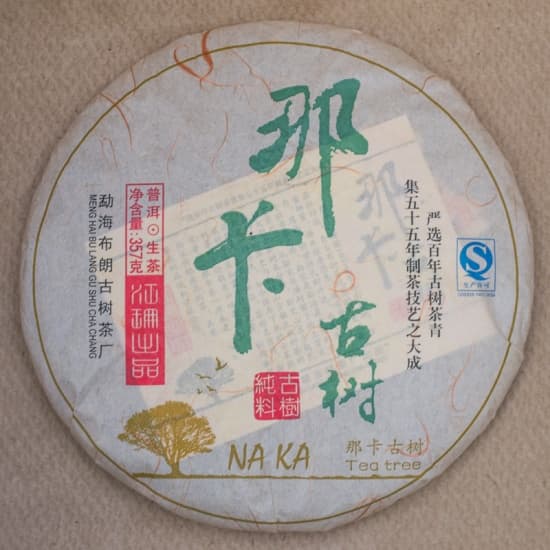 那卡
古树
严选百年古树茶青
集五十五年制茶技艺之大成
普洱⊙生茶
净含量:357克
勐海布朗古树茶厂
MENG HAI BU LANG GU SHU CHA CHANG
出品
古樹
純料
生产许可
NA KA
那卡古树
Tea tree